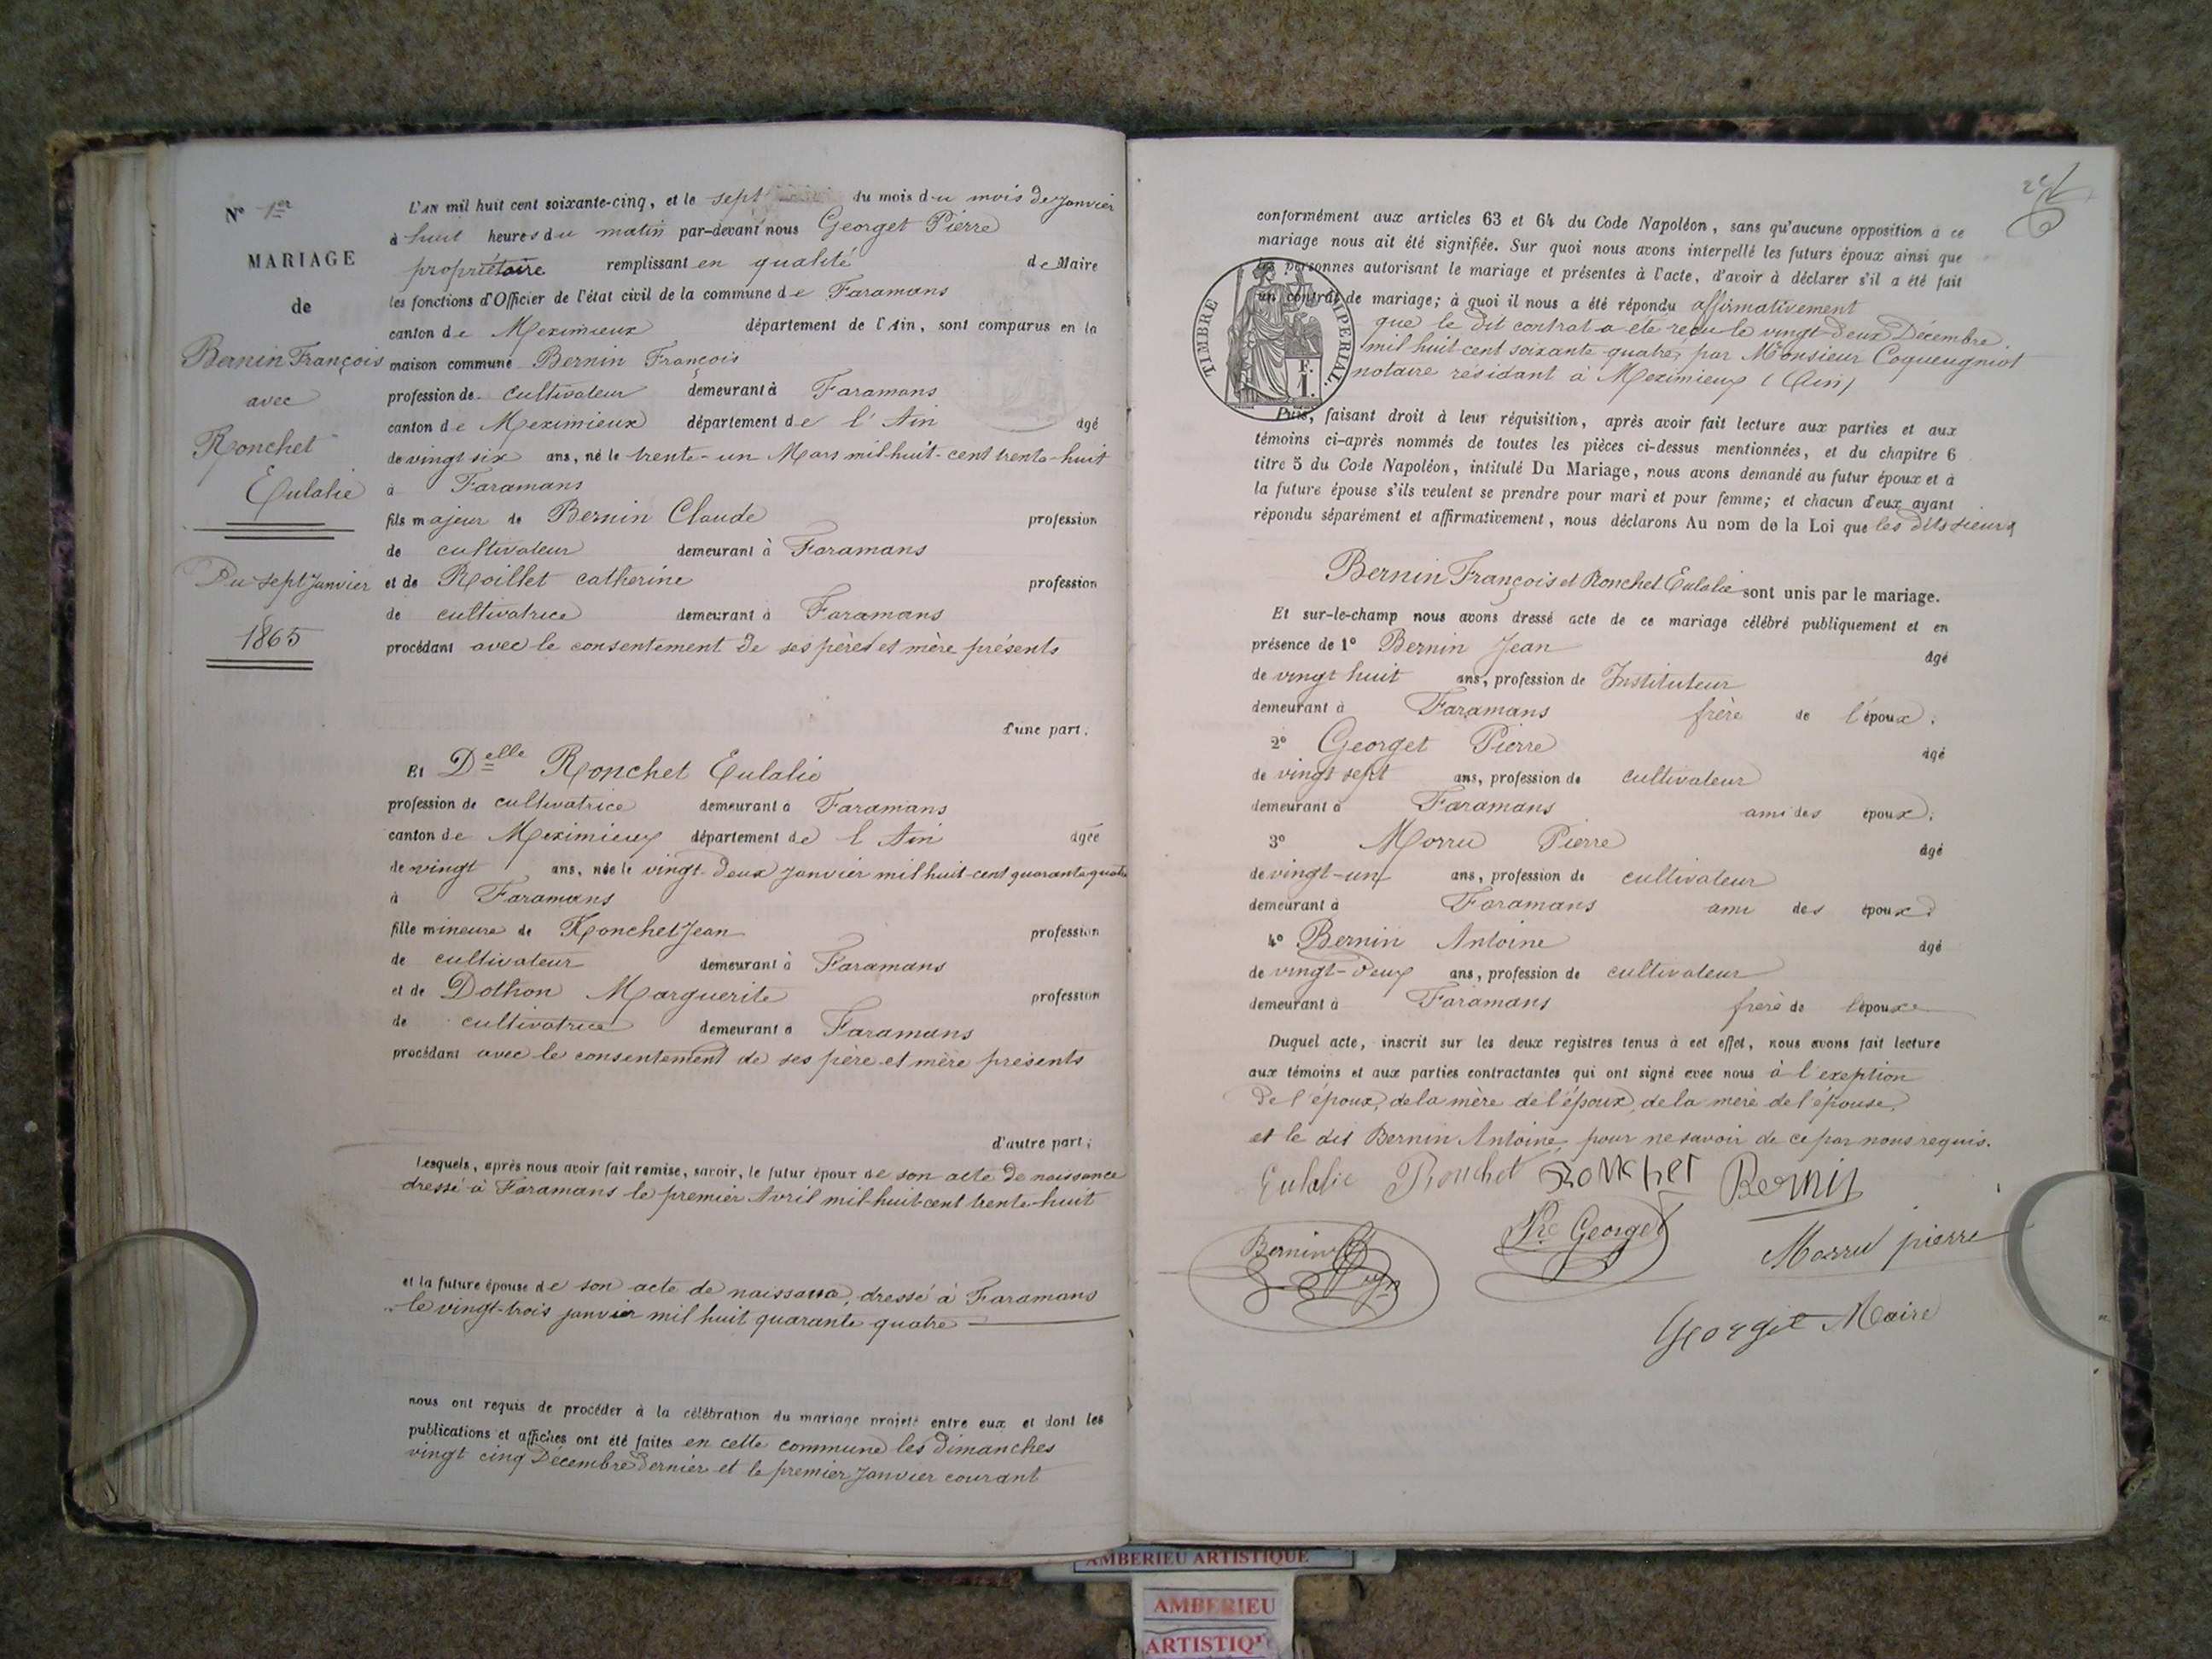 N° 1er
MARIAGE
de
Bernin François
avec
Ronchet
Eulalie
Du sept Janvier
1865
L'AN mil huit cent soixante-cinq, et le sept du mois du mois de Janvier
à huit heures du matin par-devant nous Georget Pierre
propriétaire remplissant en qualité de Maire
les fonctions d'Officier de l'état civil de la commune de Faramans
canton de Meximieux département de l'Ain, sont comparus en la
maison commune Bernin François
profession de cultivateur demeurant à Faramans
canton de Meximieux département de l'Ain âgé
de vingt six ans, né le trente-un Mars mil-huit-cent trente-huit
à Faramans
fils majeur de Bernin Claude profession
de cultivateur demeurant à Faramans
et de Roillet catherine profession
de cultivatrice demeurant à Faramans
procédant avec le consentement de ses pères et mère présents
d'une part;
Et Delle Ronchet Eulalie
profession de cultivatrice demeurant à Faramans
canton de Meximieux département de l'Ain âgée
de vingt ans, née le vingt-deux janvier mil huit-cent quarante-quatre
à Faramans
fille mineure de Ronchet Jean profession
de cultivateur demeurant à Faramans
et de Dothon Marguerite profession
de cultivatrice demeurant à Faramans
procédant avec le consentement de ses père et mère présents
d'autre part;
Lesquels, après nous avoir fait remise, savoir, le futur époux de son acte de naissance
dressé à Faramans le premier Avril mil-huit-cent trente-huit
et la future épouse de son acte de naissance, dressé à Faramans
le vingt-trois janvier mil huit quarante quatre
nous ont requis de procéder à la célébration du mariage projeté entre eux et dont les
publications et affiches ont été faites en cette commune les dimanches
vingt cinq Décembre dernier et le premier Janvier courant
conformément aux articles 63 et 64 du Code Napoléon, sans qu'aucune opposition à ce
mariage nous ait été signifiée. Sur quoi nous avons interpellé les futurs époux ainsi que
les personnes autorisant le mariage et présentes à l'acte, d'avoir à déclarer s'il a été fait
un contrat de mariage; à quoi il nous a été répondu affirmativement
que le dit contrat a été reçu le vingt-deux Décembre
mil huit-cent soixante quatre, par Monsieur Coqueugniot
notaire résidant à Meximieux (Ain)
TIMBRE IMPERIAL.
F.
1.
Puis, faisant droit à leur réquisition, après avoir fait lecture aux parties et aux
témoins ci-après nommés de toutes les pièces ci-dessus mentionnées, et du chapitre 6
titre 5 du Code Napoléon, intitulé Du Mariage, nous avons demandé au futur époux et à
la future épouse s'ils veulent se prendre pour mari et pour femme; et chacun d'eux ayant
répondu séparément et affirmativement, nous déclarons Au nom de la Loi que les dits sieurs
Bernin François et Ronchet Eulalie sont unis par le mariage.
Et sur-le-champ nous avons dressé acte de ce mariage célébré publiquement et en
présence de 1° Bernin Jean âgé
de vingt huit ans, profession de Instituteur
demeurant à Faramans frère de l'époux;
2° Georget Pierre âgé
de vingt sept ans, profession de cultivateur
demeurant à Faramans ami des époux;
3° Morru Pierre âgé
de vingt-un ans, profession de cultivateur
demeurant à Faramans ami des époux;
4° Bernin Antoine âgé
de vingt-deux ans, profession de cultivateur
demeurant à Faramans frère de l'époux
Duquel acte, inscrit sur les deux registres tenus à cet effet, nous avons fait lecture
aux témoins et aux parties contractantes qui ont signé avec nous à l'exeption
de l'époux, de la mère de l'époux, de la mère de l'épouse,
et le dit Bernin Antoine, pour ne savoir de ce par nous requis.
Eulalie Ronchet Ronchet Bernin
Bernin
Pre Georget
Morru pierre
Georget Maire
AMBERIEU ARTISTIQUE
AMBERIEU
ARTISTIQUE